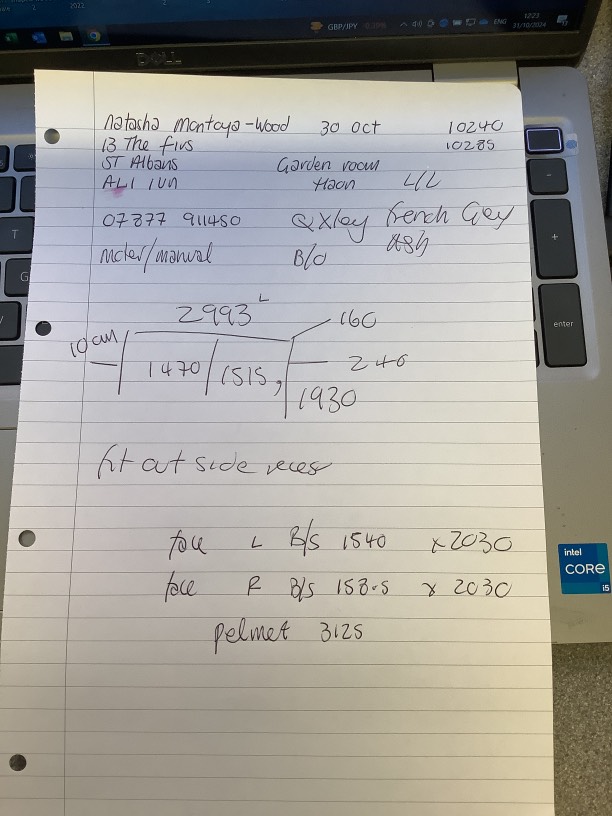 GBP/JPY
ENG
12:23
21/10/2024
DELL
natasha montoya-Wood 30 oct 10240
13 The firs 10285
ST Albans Garden room
AL1 1UN L/L
07877 911450 French Grey
/manual B/O ash
2993 L
160
10cm
1470 / 1515, 240
1930
fit at side recess
face L B/S 1540 x 2030
face R B/S 158.5 x 2030
pelmet 3125
enter
intel
CORE
i5